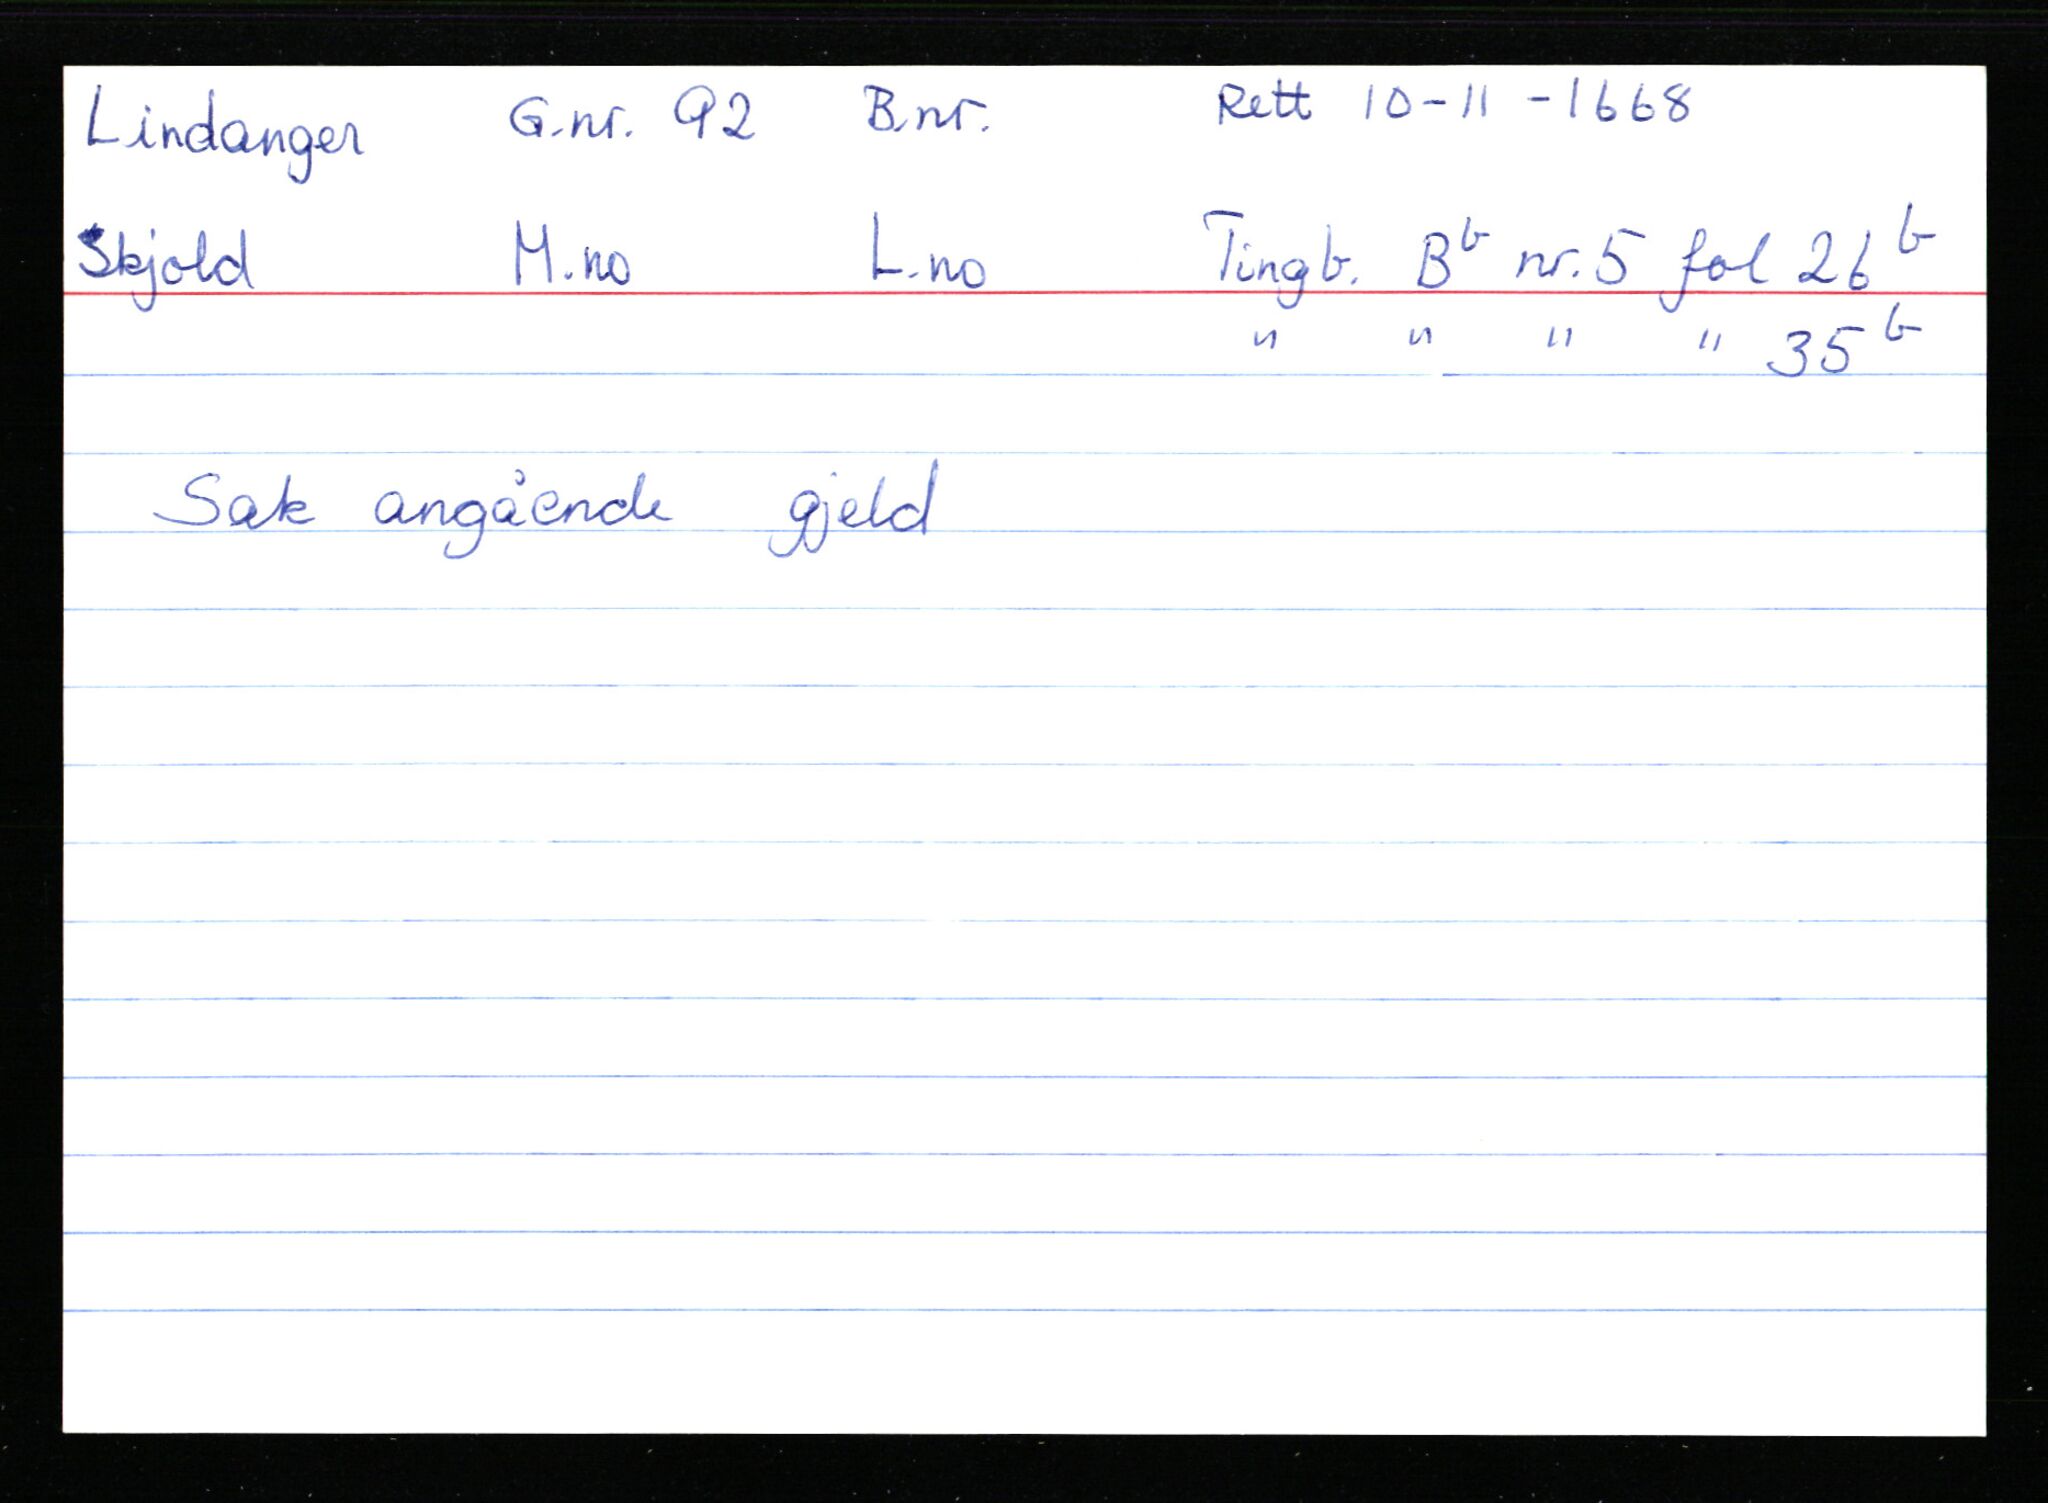 Lindanger G.nr. 92 B.nr. Rett 10-11-1668
Skjold M.no L.no Tingb. Bb nr. 5 fol 26b
" " " " 35b
Sak angående gjeld